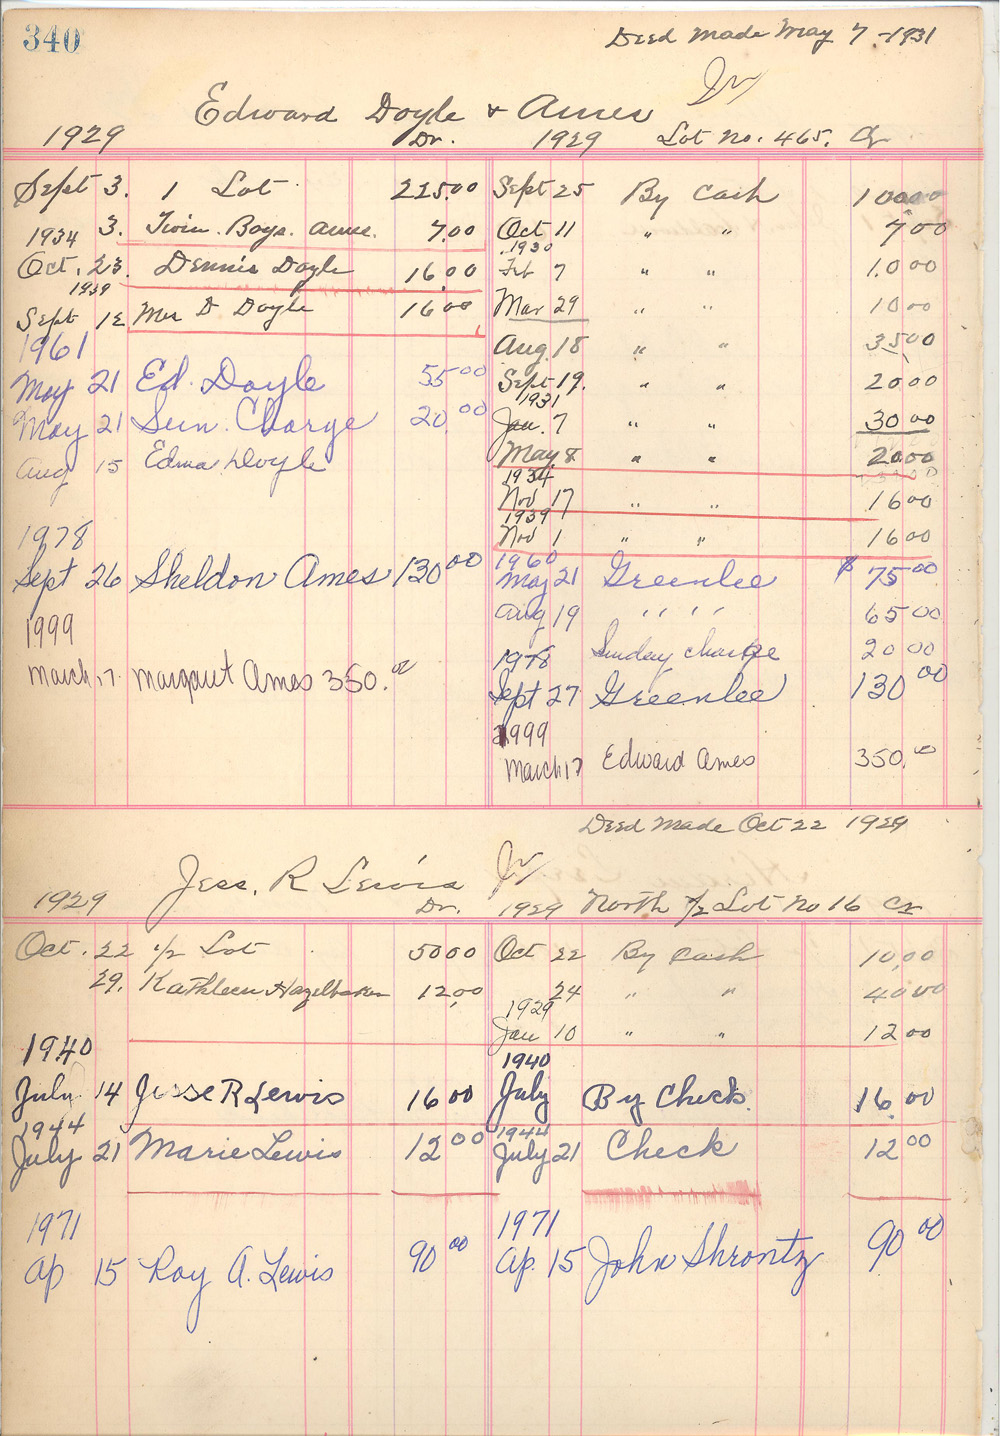 340
Deed Made May 7 - 1931
Edward Doyle & Ames
1929 Dr. 1929 Lot No. 465. Cr
Sept 3. 1 Lot 225.00 Sept 25 By Cash 100.00
3. Twin Boys. Ames. 7.00 Oct 11 " " 7.00
1934 1930
Oct. 23. Dennis Doyle 16.00 Feb 7 " " 10.00
1939
Sept 12 Mrs D Doyle 16.00 Mar 29 " " 10.00
1961 Aug. 18 " " 35.00
May 21 Ed. Doyle 55.00 Sept 19. " " 20.00
1931
May 21 Sun. Charge 20.00 Jan. 7 " " 30.00
Aug 15 Edna Doyle May 8 " " 20.00
1934
Nov 17 " " 16.00
1939
Nov 1 " " 16.00
1978 1960
Sept 26 Sheldon Ames 130.00 May 21 Greenlee $ 75.00
Aug 19 " " 65.00
1999 Sunday charge 20.00
1978
March 17 Margaret Ames 350.00 Sept 27 Greenlee 130.00
1999
March 17 Edward Ames 350.00
Deed Made Oct 22 1929
Jess. R Lewis
1929 Dr. 1929 North 1/2 Lot No 16 Cr
Oct. 22 1/2 Lot 50.00 Oct 22 By Cash 10.00
29. Kathleen Hazelbaker 12.00 24 " " 40.00
1929
Jan 10 " " 12.00
1940 1940
July 14 Jesse R Lewis 16.00 July By Check. 16.00
1944 1944
July 21 Marie Lewis 12.00 July 21 Check 12.00
1971 1971
Ap 15 Roy A. Lewis 90.00 Ap. 15 John Shrontz 90.00